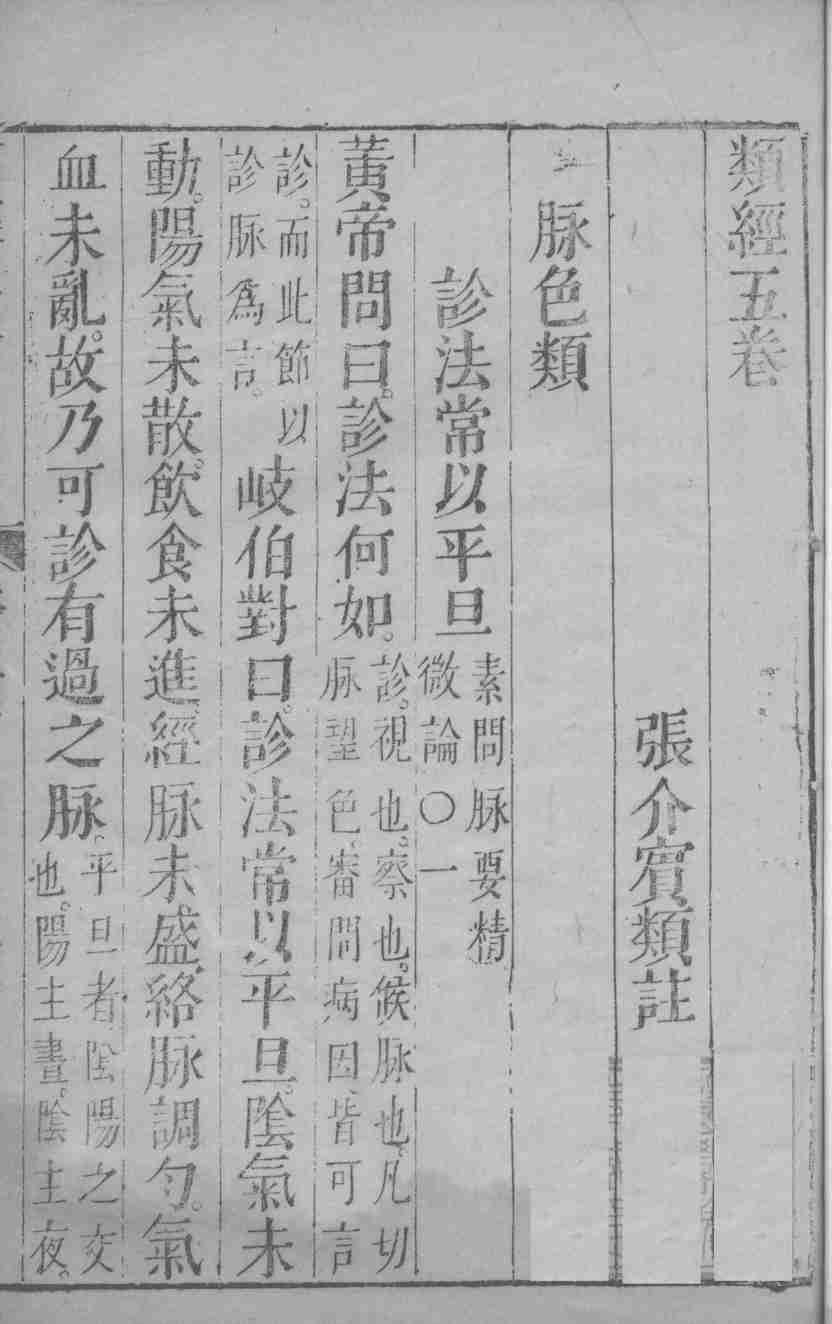 類經五卷
張介賓類註
脉色類
診法常以平旦素問脉要精微論○一
黃帝問曰。診法何如。診。視也。察也。候脉也。凡切脉望色。審問病因。皆可言
診。而此節以診脉爲言。岐伯對曰。診法常以平旦。陰氣未
動。陽氣未散。飲食未進。經脉未盛。絡脉調勻。氣
血未亂。故乃可診有過之脉。平旦者陰陽之交也。陽主晝。陰主夜。